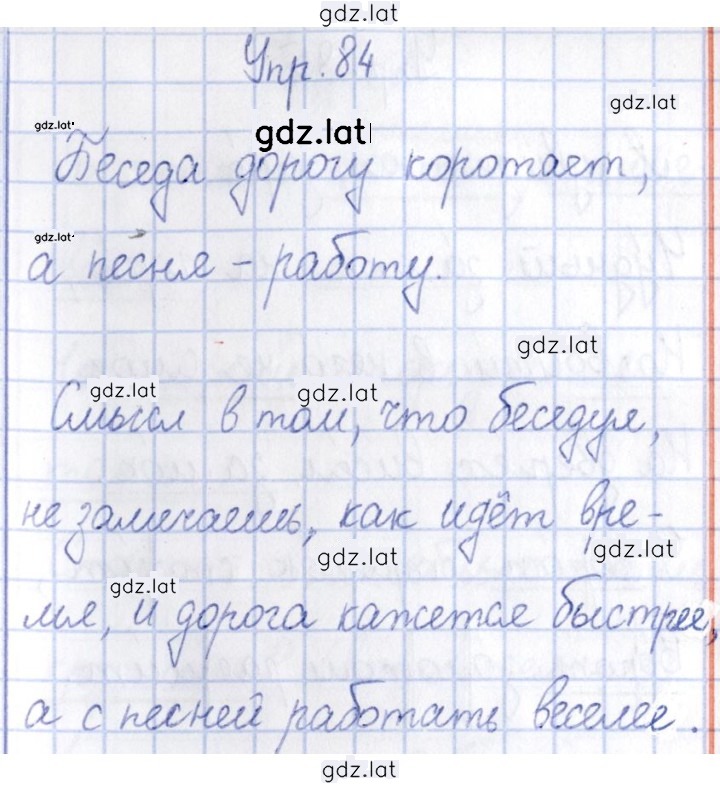 gdz.lat
Упр. 84
gdz.lat
gdz.lat
gdz.lat
Беседа дорогу коротает,
gdz.lat
а песня - работу.
gdz.lat
gdz.lat
gdz.lat
Смысл в том, что беседуя,
не замечаешь, как идёт вре-
gdz.lat
gdz.lat
gdz.lat
мя, и дорога кажется быстрее,
а с песней работать веселее.
gdz.lat